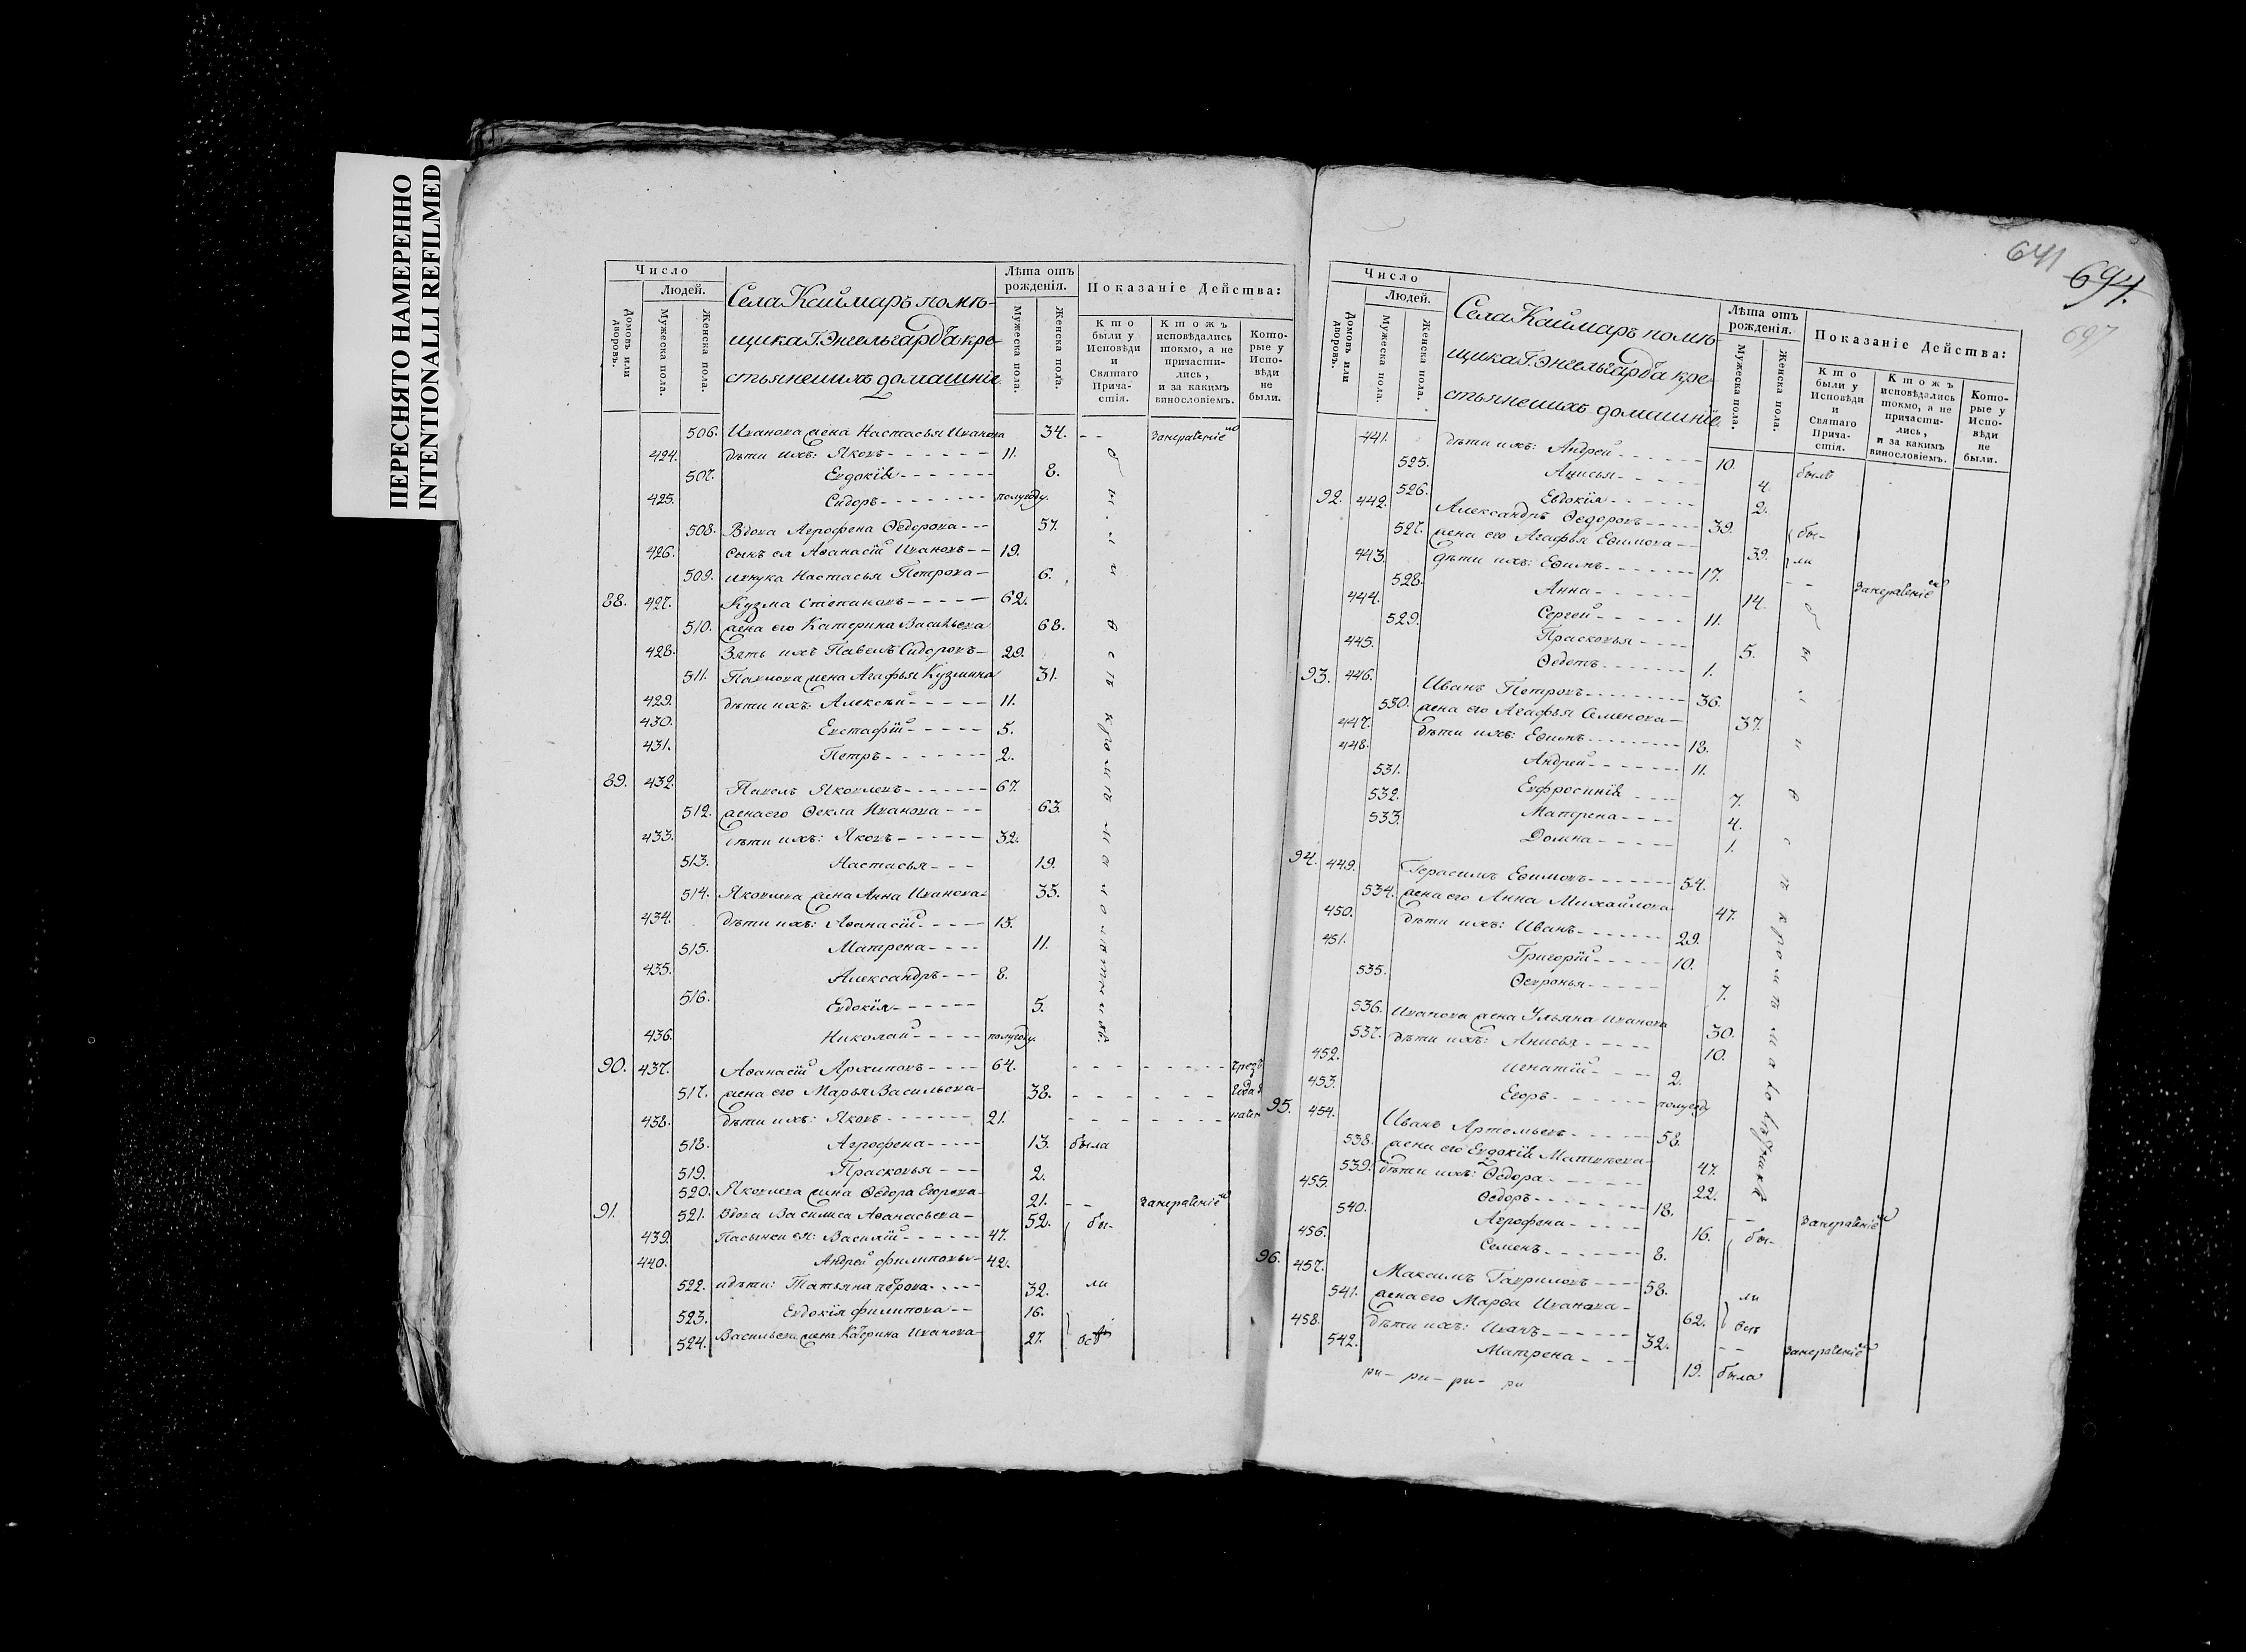 ПЕРЕСНЯТО НАМЕРЕННО
INTENTIONALLI REFILMED
641
694.
697
Число
Людей.
Домовъ или дворовъ.
Мужеска пола.
Женска пола.
Села Каймаръ помѣ-
щика Г. Энгельгардта кре-
стьяне и ихъ домашніе
Лѣта отъ рожденія.
Мужеска пола.
Женска пола.
Показаніе Действа:
Кто были у Исповѣди и Святаго Причастія.
Ктожъ исповѣдались токмо, а не причастились, и за какимъ винословіемъ.
Которые у Исповѣди не были.
506. Иванова жена Настасья Иванова 34. - - занераченіемъ
424. дѣти ихъ: Яковъ 11.
507. Евдокія 8.
425. Сидоръ полугоду.
508. Вдова Агрофена Ѳедорова 57.
426. сынъ ея Аѳанасій Ивановъ 19.
509. внука Настасья Петрова 6.
88. 427. Кузма Степановъ 62.
510. жена его Катерина Васильева 68.
428. Зять ихъ Павелъ Сидоровъ 29.
511. Павлова жена Агафья Кузмина 31.
429. дѣти ихъ: Алексѣй 11.
430. Евстафій 5.
431. Петръ 2.
89. 432. Павелъ Яковлевъ 67.
512. жена его Ѳекла Иванова 63.
433. дѣти ихъ: Яковъ 32.
513. Настасья 19.
514. Яковлева жена Анна Иванова 35.
434. дѣти ихъ: Аѳанасій 15.
515. Матрена 11.
435. Александръ 8.
516. Евдокія 5.
436. Николай полугоду.
90. 437. Аѳанасій Архиповъ 64.
517. жена его Марья Васильева 38.
438. дѣти ихъ: Яковъ 21.
518. Агрофена 13. была
519. Прасковья 2.
520. Яковлева жена Ѳедора Егорова 21. - - занераченіемъ
91. 521. Вдова Василиса Аѳанасьева 52. бы-
439. Пасынки ея: Василій 47.
440. Андрей Филиповы 42.
522. и дѣти: Татьяна 32. ли
523. Евдокія Филипова 16.
524. Васильева жена Катерина Иванова 27. всѣ
Число
Людей.
Домовъ или дворовъ.
Мужеска пола.
Женска пола.
Села Каймаръ помѣ-
щика Г. Энгельгардта кре-
стьяне и ихъ домашніе.
Лѣта отъ рожденія.
Мужеска пола.
Женска пола.
Показаніе Действа:
Кто были у Исповѣди и Святаго Причастія.
Ктожъ исповѣдались токмо, а не причастились, и за какимъ винословіемъ.
Которые у Исповѣди не были.
441. дѣти ихъ: Андрей 10. былъ
525. Анисья 4.
526. Евдокія 2.
92. 442. Александръ Ѳедоровъ 39. бы-
527. жена его Агафья Еѳимова 39. ли
443. дѣти ихъ: Еѳимъ 17. - - занераченіемъ
528. Анна 14.
444. Сергей 11.
529. Прасковья 5.
445. Ѳедотъ 1.
93. 446. Иванъ Петровъ 36.
530. жена его Агафья Семенова 37.
447. дѣти ихъ: Еѳимъ 18.
448. Андрей 11.
531. Евфросинія 7.
532. Матрена 4.
533. Домна 1.
94. 449. Герасимъ Еѳимовъ 54.
534. жена его Анна Михайлова 47.
450. дѣти ихъ: Иванъ 29.
451. Григорій 10.
535. Ѳевронья 7.
536. Иванова жена Ульяна Иванова 30.
537. дѣти ихъ: Анисья 10.
452. Игнатій 2.
453. Егоръ полугоду
95. 454. Иванъ Артемьевъ 58.
538. жена его Евдокія Матвѣева 47.
539. дѣти ихъ: Ѳедора 22.
455. Ѳедоръ 18. - - занераченіемъ
540. Агрофена 16. бы-
456. Семенъ 8.
96. 457. Максимъ Гавриловъ 58. ли
541. жена его Марѳа Иванова 62. всѣ
458. дѣти ихъ: Иванъ 32. - - занераченіемъ
542. Матрена 19. была
ри- ри- ри- ри